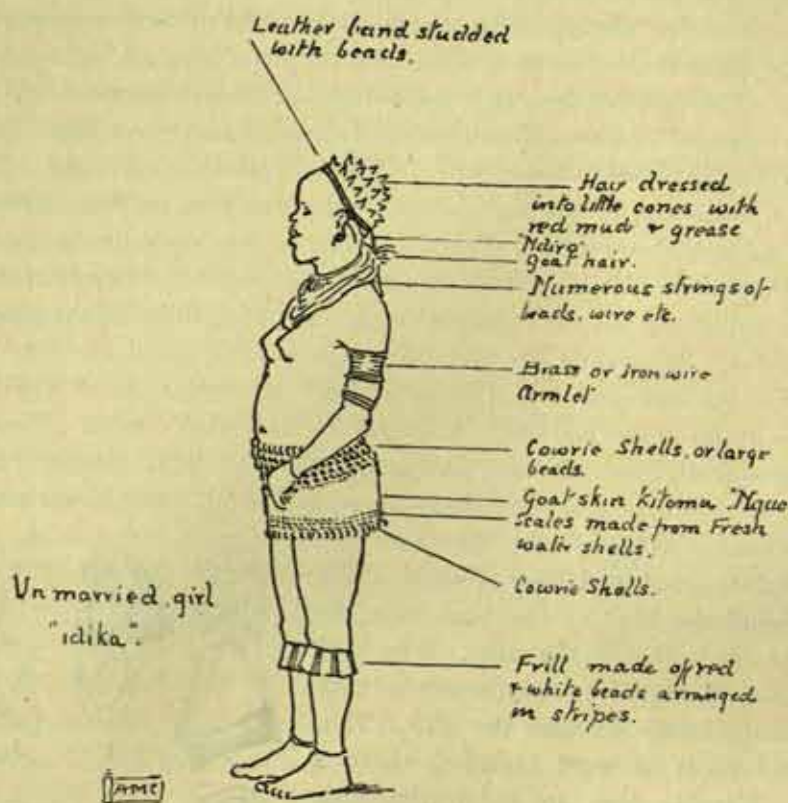 Leather band studded
with beads.
Hair dressed
into little cones with
red mud & grease
"Ndiro"
Goat hair.
Numerous strings of
beads, wire etc.
Brass or Iron wire
Armlet
Cowrie Shells, or large
beads.
Goat skin Kitomu "Nguo
Scales made from Fresh
water shells.
Cowrie Shells.
Unmarried girl
"idika".
Frill made of red
& white beads arranged
in stripes.
AMC